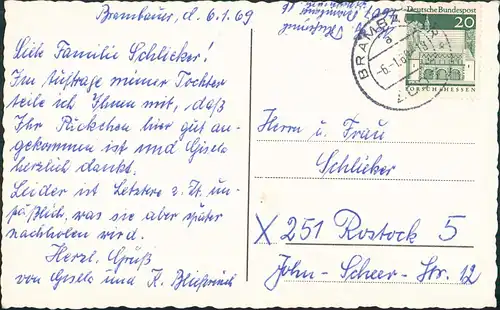 Brambauer, d. 6.1.69
Liebe Familie Schlicker!
Im Auftrage meiner Tochter
teile ich Ihnen mit, daß
Ihr Päckchen hier gut an-
gekommen ist und Gisela
herzlich dankt.
Leider ist Letztere z. Zt. un-
päßlich, was sie aber später
nachholen wird.
Herzl. Grüß
von Gisela und K.
Deutsche Bundespost
20
LORSCH/HESSEN
BRAMBAUER
-6.-1.69
Herrn u. Frau
Schlicker
X 251 Rostock 5
John-Scheer-Str. 12